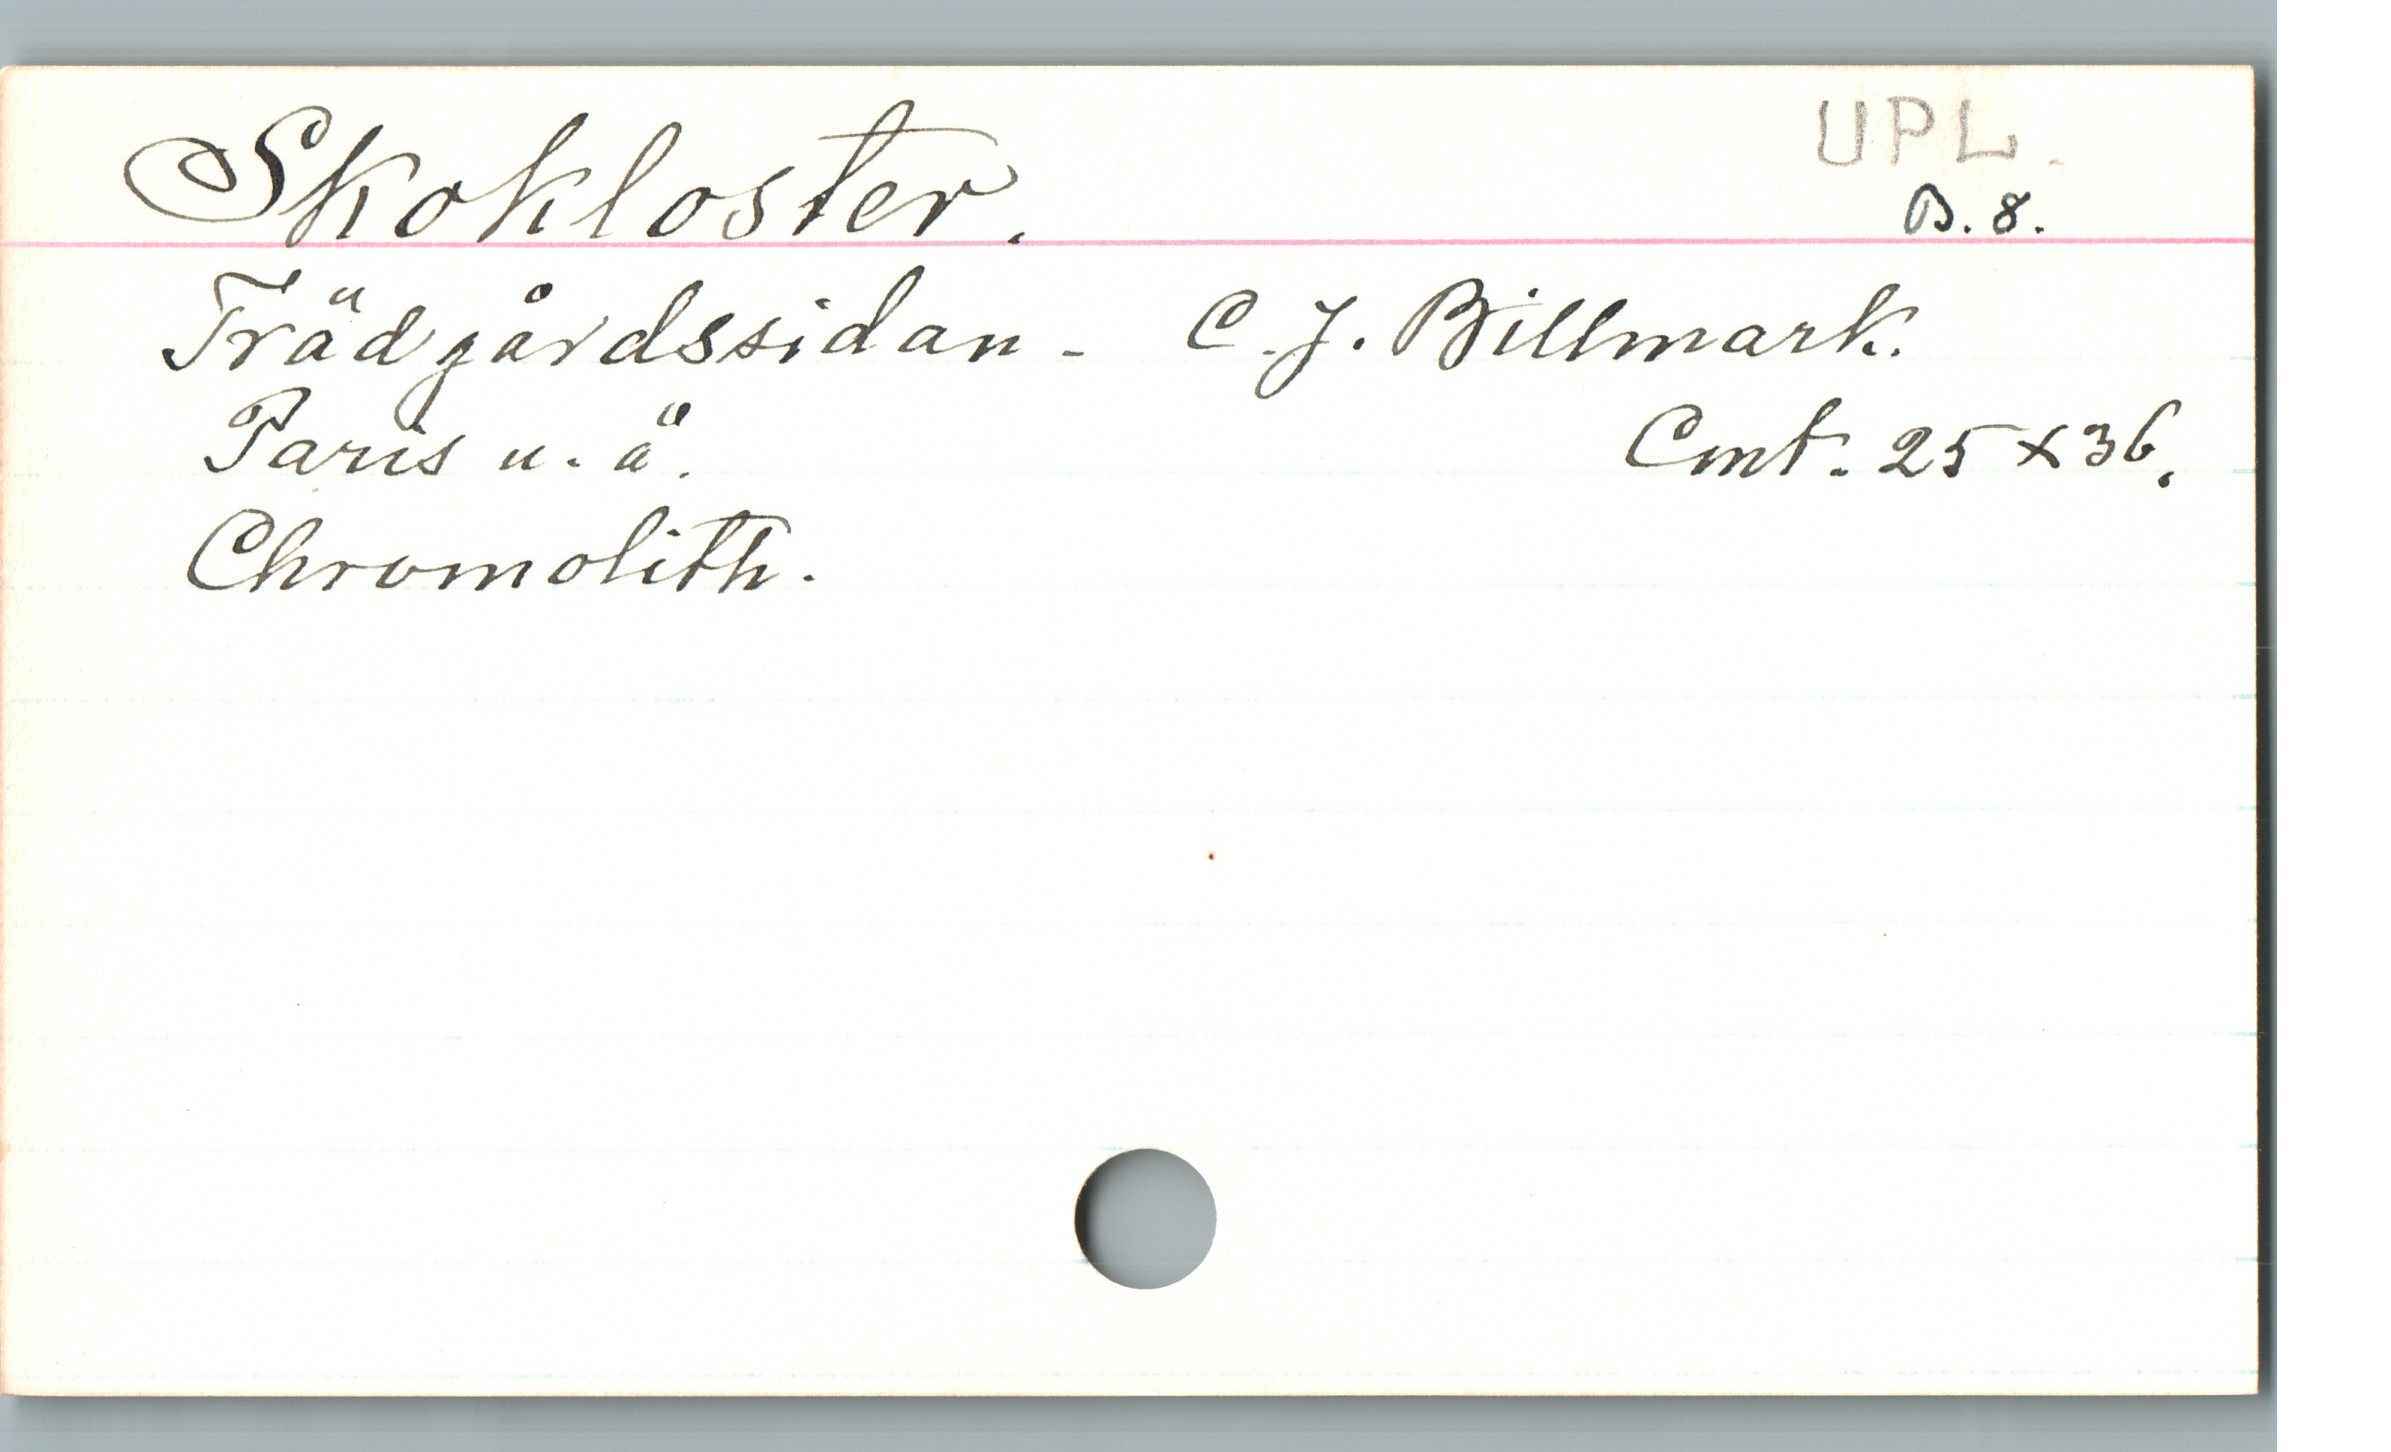 Skokloster.
UPL.
B. 8.
Trädgårdssidan - C. J. Billmark.
Paris u. ä. Cmt. 25 x 36.
Chromolith.